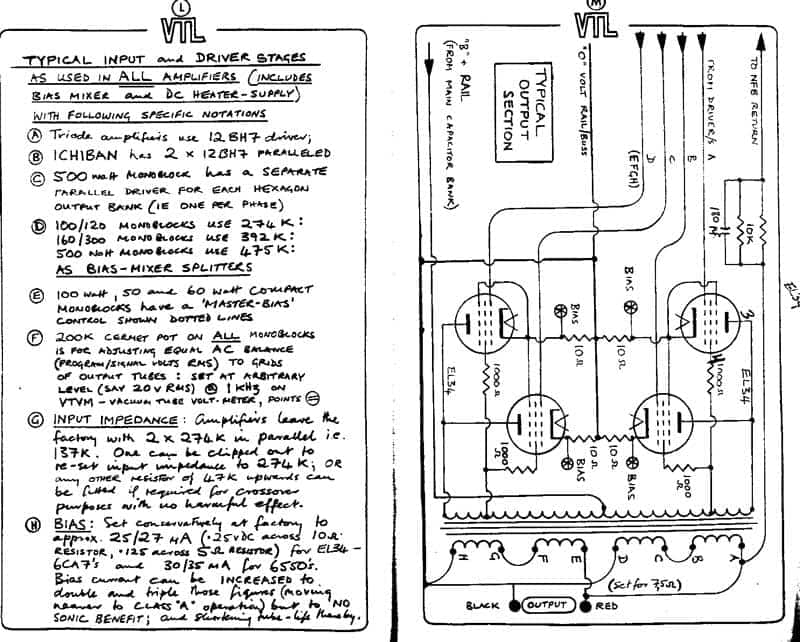 L
VTL
TYPICAL INPUT and DRIVER STAGES
AS USED IN ALL AMPLIFIERS (INCLUDES
BIAS MIXER and DC HEATER-SUPPLY)
WITH FOLLOWING SPECIFIC NOTATIONS
A Triode amplifiers use 12BH7 driver;
B ICHIBAN has 2 x 12BH7 PARALLELED
C 500 watt MONOBLOCK has a SEPARATE
PARALLEL DRIVER FOR EACH HEXAGON
OUTPUT BANK (IE ONE PER PHASE)
D 100/120 MONOBLOCKS USE 274K:
160/300 MONOBLOCKS USE 392K:
500 Watt MONOBLOCKS USE 475K:
AS BIAS-MIXER SPLITTERS
E 100 watt, 50 and 60 watt COMPACT
MONOBLOCKS have a 'MASTER-BIAS'
CONTROL SHOWN DOTTED LINES
F 200K CERMET POT ON ALL MONOBLOCKS
IS FOR ADJUSTING EQUAL AC BALANCE
(PROGRAM/SIGNAL VOLTS RMS) TO GRIDS
OF OUTPUT TUBES: SET AT ARBITRARY
LEVEL (SAY 20V RMS) @ 1KHz ON
VTVM-VACUUM TUBE VOLT-METER, POINTS
G INPUT IMPEDANCE: Amplifiers leave the
factory with 2 x 274K in parallel i.e.
137K. One can be clipped out to
re-set input impedance to 274K; OR
any OTHER resistor of 47K upwards can
be fitted if required for crossover
purposes with no harmful effect.
H BIAS: Set conservatively at factory to
approx. 25/27 MA (.25VDC across 10Ω
RESISTOR, .125 across 5Ω RESISTOR) for EL34-
6CA7's and 30/35 MA for 6550's.
Bias current can be INCREASED to
double and triple those figures (moving
nearer to CLASS "A" operation) but to NO
SONIC BENEFIT; and shortening tube-life thereby.
M
VTL
"B" + RAIL
(FROM MAIN CAPACITOR BANK)
TYPICAL
OUTPUT
SECTION
"O" VOLT RAIL/BUSS
(EFGH)
D
C
B
FROM DRIVER/S A
TO NFB RETURN
180
10K
EL34
BIAS
BIAS
3
10Ω
10Ω
EL34
1000Ω
1000Ω
EL34
10Ω
10Ω
BIAS
BIAS
1000Ω
1000Ω
H
G
F
E
D
C
B
A
(Set for 7,5Ω)
BLACK
OUTPUT
RED